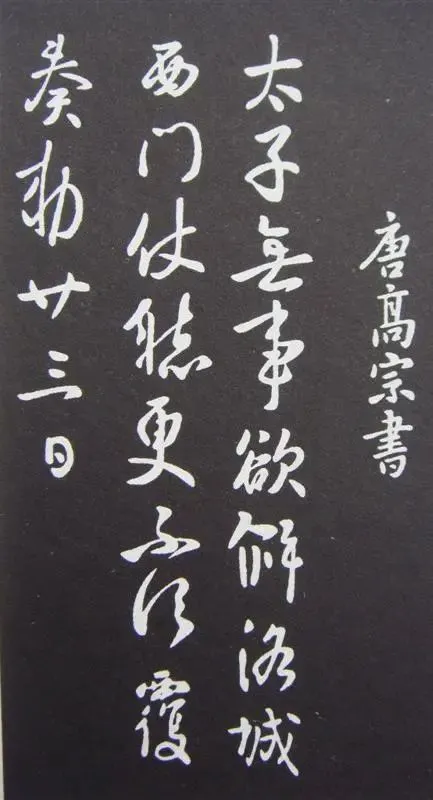 唐高宗書
太子無事欲解洛城
西門仗聽更不須覆
奏勅廿三日